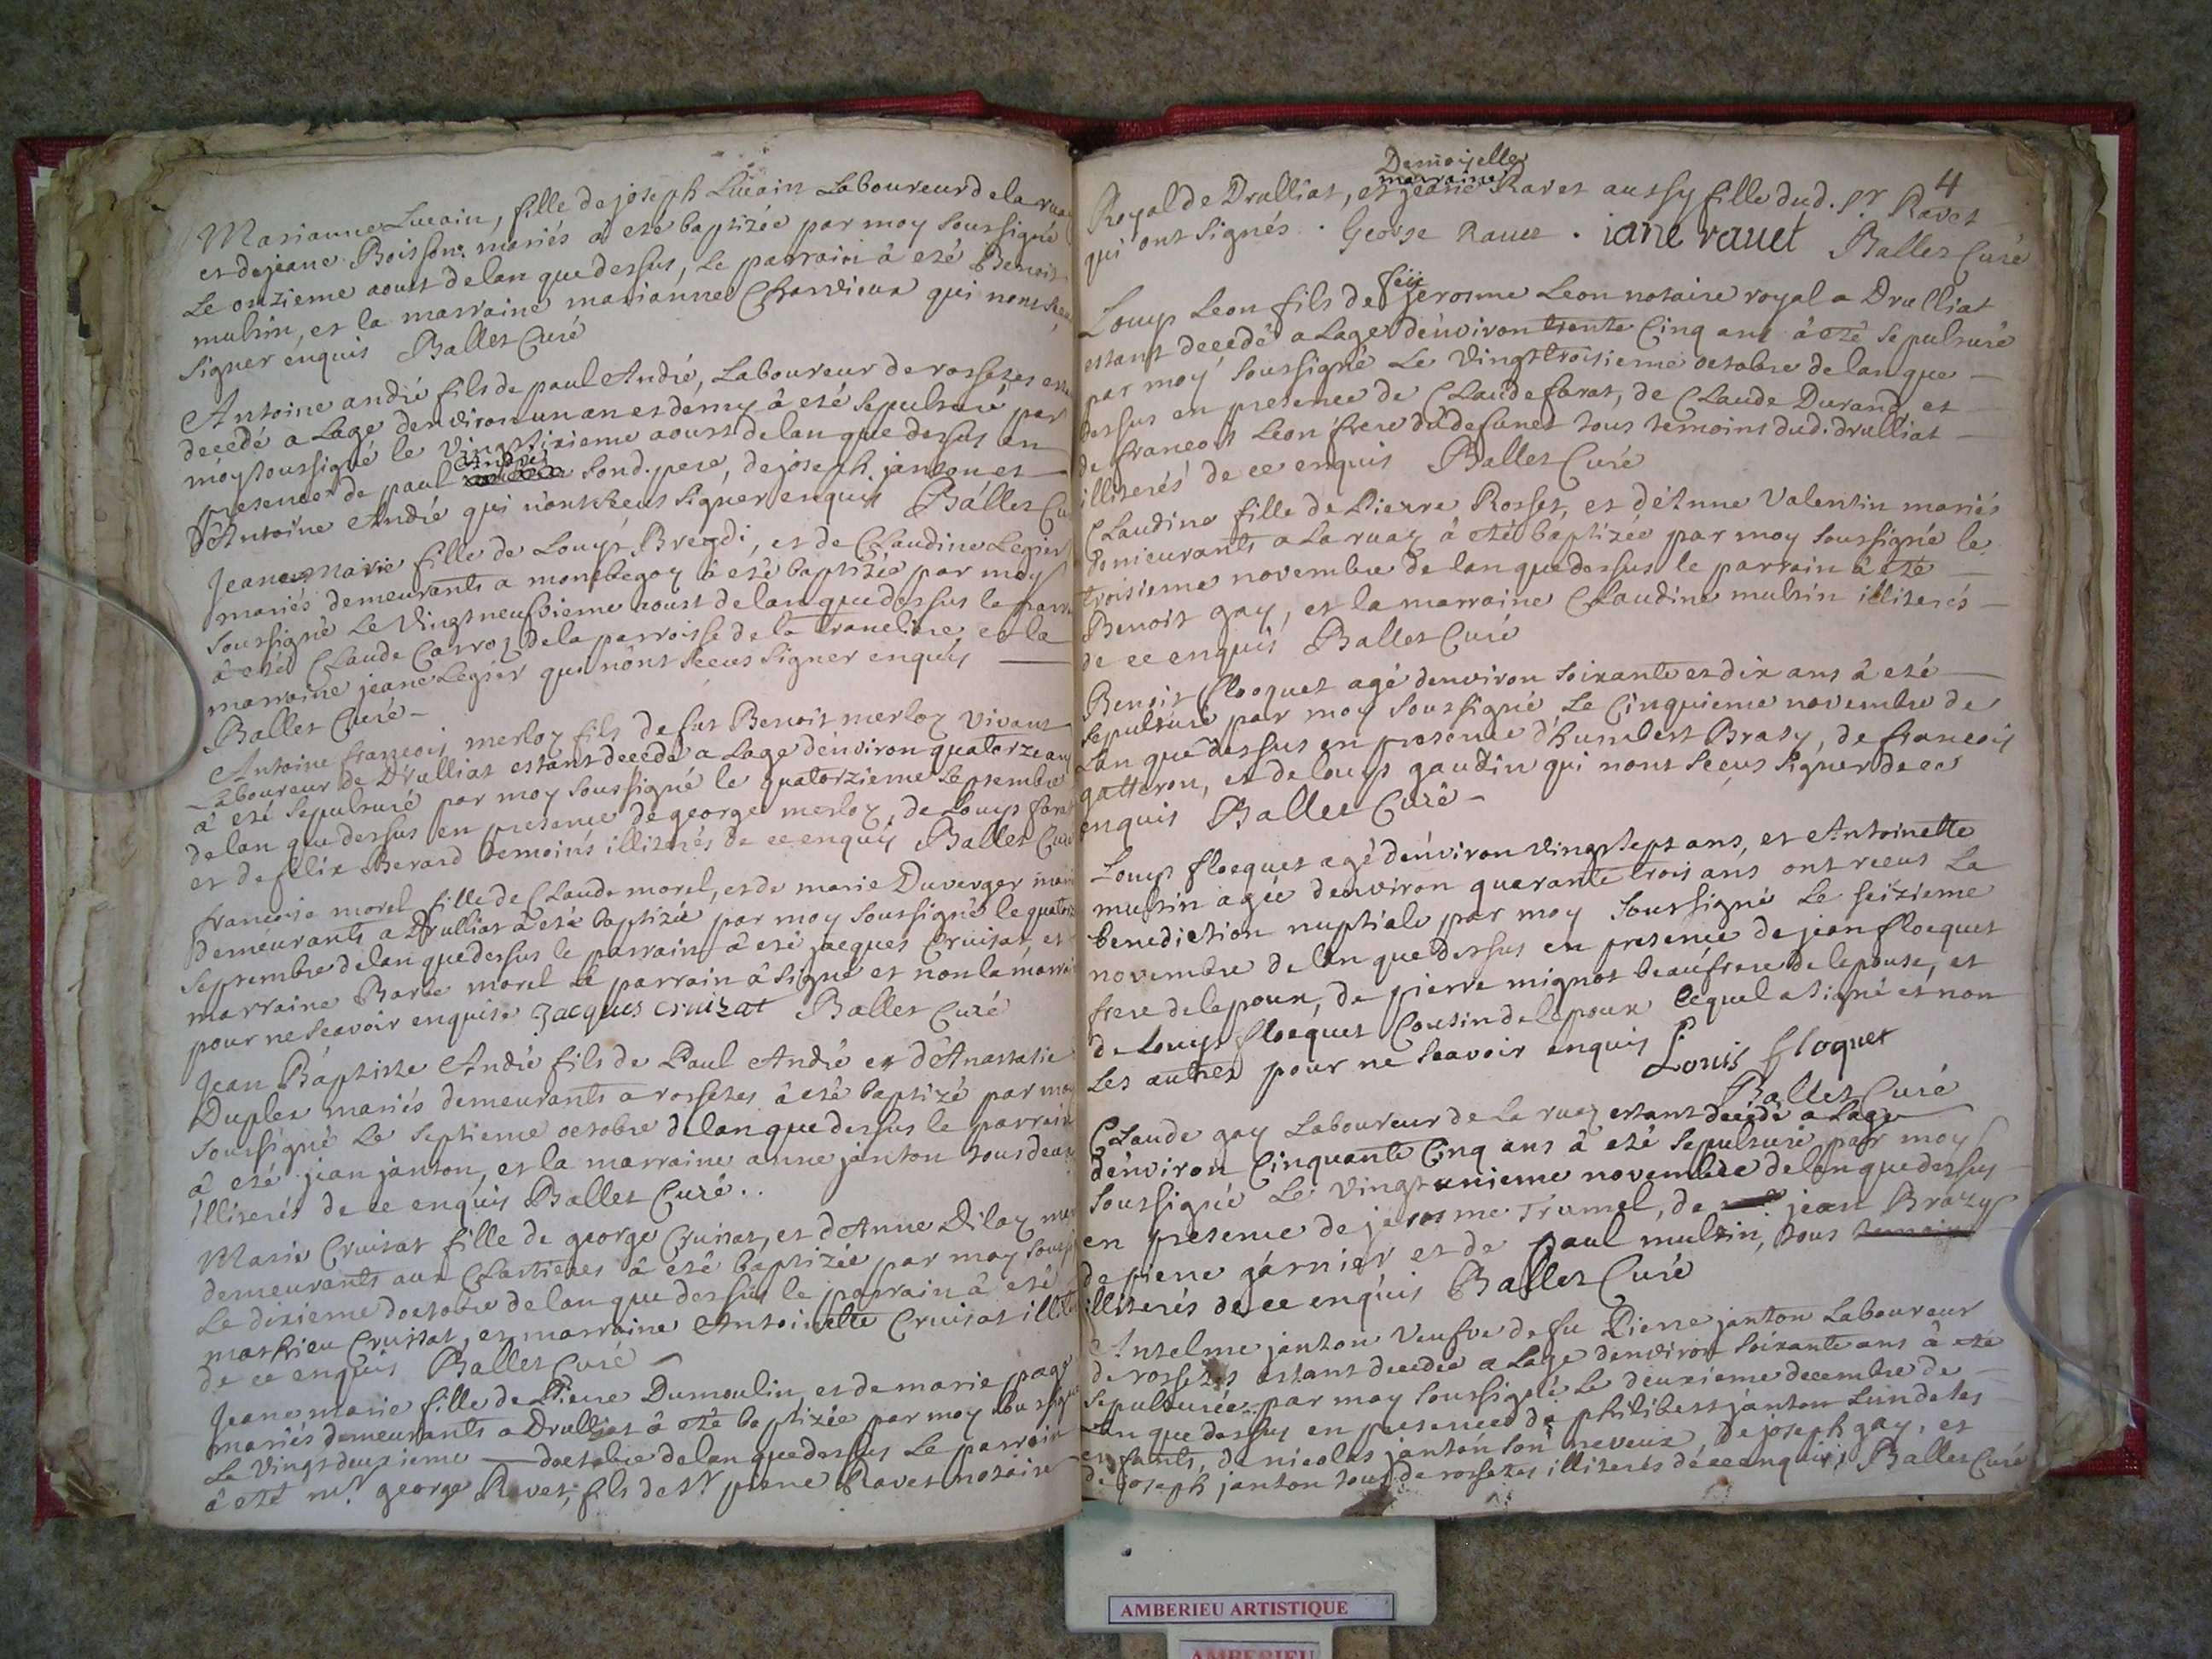 Marianne Lucain, fille de joseph Lucain Laboureur de la ruaz
et de jeane Boisson mariés â eté baptizée par moy soussigné
Le onzieme aoust de lan que dessus, Le parrain â eté Benoit
multin, et la marraine marianne Chardieux qui nont sceu
signer enquis Ballet Curé
Antoine andré fils de paul André, Laboureur de rossetes
decedé a Lage denviron un an et demy â eté sepulturé par
moy soussigné le vingtsixieme aoust de lan que dessus en
presence de paul André sond. pere, de joseph janton et
d'Antoine André qui n'ont sceus signer enquis Ballet Cu
Jeane marie fille de Louys Bregdi, et de Claudine Legier
mariés demeurants a montbegoz â eté baptizée par moy
soussigné Le vingtneufvieme aoust de lan que dessus le parr
â eté Claude Carroz de la parroisse de la tranclire, et la
marraine jeane Legier qui n'ont sceus signer enquis
Ballet Curé
Antoine françois merloz fils de fut Benoit merloz vivant
Laboureur de Drulliat estant decedé a Lage d'environ quatorze ans
â eté sepulturé par moy soussigné le quatorzieme septembre
de lan que dessus en presence de george merloz, de Louys fara
et de felix Berard temoins illiterés de ce enquis Ballet Curé
françoise morel fille de Claude morel, et de marie Duverger mari
demeurants a Drulliat â eté baptizée par moy soussigné le quator
septembre de lan que dessus le parrain â eté jacques Cruisat, et
marraine Barbe morel Le parrain â signé et non la marrai
pour ne sçavoir enquise Jacques cruizat Ballet Curé
Jean Baptiste André fils de Paul André et d'Anastasie
Duplex mariés demeurants a rossetes â eté baptizé par moy
soussigné Le septieme octobre de lan que dessus le parrain
â eté jean janton, et la marraine anne janton tous deux
illiterés de ce enquis Ballet Curé.
Marie Cruisat fille de george Cruisat, et d'Anne Dilaz mar
demeurants aux Chartieres â eté baptizée par moy souss
Le dixieme doctobre de lan que dessus le parrain â eté
mathieu Cruisat, et marraine Antoinette Cruisat illite
de ce enquis Ballet Curé
Jeane marie fille de Pierre Dumoulin, et de marie page
mariés demeurants a Drulliat â eté baptizée par moy soussigné
Le vingtdeuxieme doctobre de lan que dessus Le parrain
â eté mr. george Ravet, fils de Sr pierre Ravet notaire
4
Demoiselle
marraine
Royal de Drulliat, et jeane Ravet aussy fille dud. sr Ravet
qui ont signés. George Rauet. iane rauet Ballet Curé
Louys Leon fils de feu jerosme Leon notaire royal a Drulliat
estant decedé a Lage d'environ trente Cinq ans â eté sepulturé
par moy soussigné Le vingttroisieme octobre de lan que
dessus en presence de Claude farat, de Claude Durand, et
de françois Leon frere du defunct tous temoins dud. drulliat
illiterés de ce enquis Ballet Curé
Claudine fille de Pierre Rosset, et d'Anne Valentin mariés
demeurants a La ruaz â eté baptizée par moy soussigné le
troisieme novembre de lan que dessus le parrain â eté
Benoit gay, et la marraine Claudine multin illiterés
de ce enquis Ballet Curé
Benoit flocquet agé denviron soixante et dix ans â eté
sepulturé par moy soussigné Le Cinquieme novembre de
Lan que dessus en presence d'humbert Brazy, de françois
gatteron, et de louys gaudin qui nont sceus signer de ce
enquis Ballet Curé
Louys flocquet agé d'environ vingtsept ans, et Antoinette
multin agée denviron quarante trois ans ont receus La
benediction nuptiale par moy soussigné Le seizieme
novembre de lan que dessus en presence de jean flocquet
frere de lepoux, de pierre mignot beaufrere de lepouse, et
de Louys flocquet Cousin de lepoux Lequel a signé et non
Les autres pour ne sçavoir enquis Louis floquet
Ballet Curé
Claude gay Laboureur de La ruaz estant decedé a Lage
d'environ Cinquante Cinq ans â eté sepulturé par moy
soussigné Le vingtunieme novembre de lan que dessus
en presence de jerosme Trumel, de jean Brazy
de pierre garnier et de paul multin, tous temoins
illiterés de ce enquis Ballet Curé
Antelme janton veufve de fu Pierre janton Laboureur
de rossetes estant decedée a Lage denviron soixante ans â eté
sepulturée par moy soussigné Le deuxieme decembre de
Lan que dessus en presence de philibert janton Lun de ses
enfants, de nicolas janton son neveux, de joseph gay, et
de joseph janton tous de rossetes illiterés de ce enquis Ballet Curé
AMBERIEU ARTISTIQUE
AMBERIEU